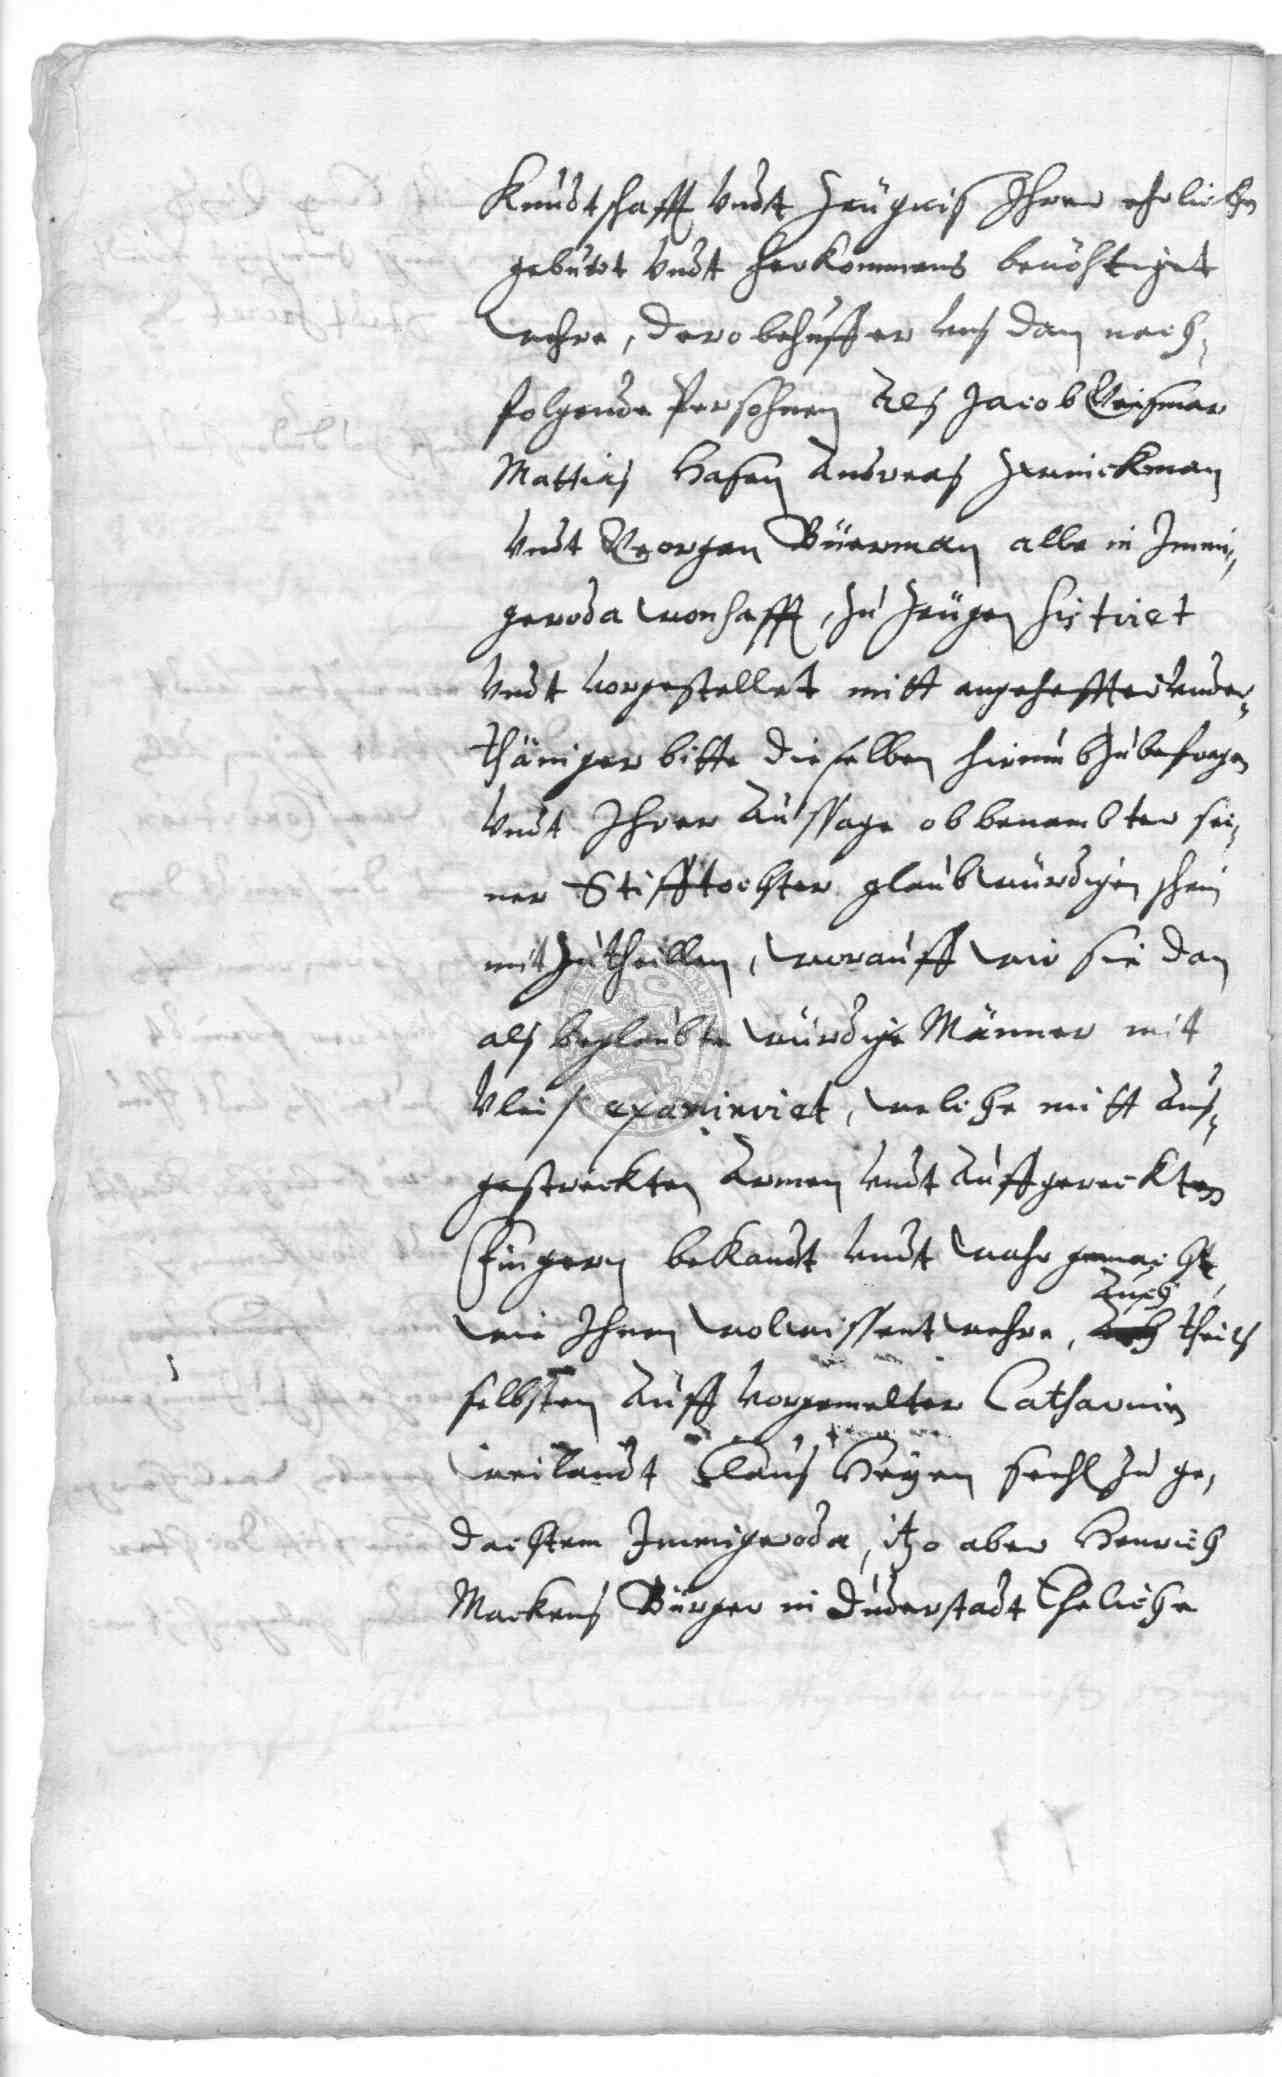 Kundtschafft undt Zeügnis Ihrer ehrlichen
gebuhrt undt herkommens benöhtiget
wehre, dero behuff er uns dan nach-
folgende Persohnen Als Jacob Geismar
Mattias Hasen Andreas Zwinckman
undt Georgen Büerman alle in Immi-
geroda wonhafft, zu Zeügen sistiret
undt vorgestellet mitt angeheffter under-
thäniger bitte dieselben hirumb zubefragen
undt Ihrer Aussage obbenambter sei-
ner Stifftochter glaubwürdigen schein
mitzutheillen, worauff wir sie dan
als beglaubte würdige Männer mit
Vleis examiniret, welche mitt Aus-
gestreckten Armen undt Auffgereckten
Fingern bekandt undt wahr gemacht,
Auch
wie Ihnen wolwissent wehre, theils
selbsten Auff vorgemelter Catharinen
weilandt Claus Heÿen seehl zu ge-
dachtem Immigeroda, itzo aber Henrich
Mackens Bürger in Duderstadt Eheliche